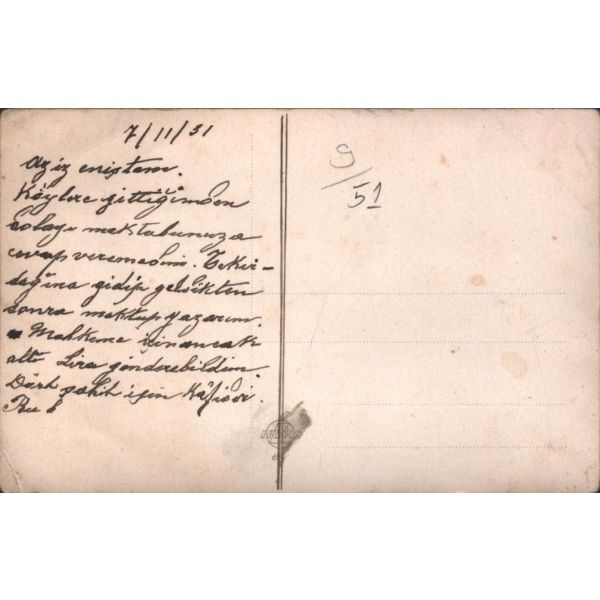 7/11/31
Aziz eniştem.
Köylere gittiğimden
dolayı mektubunuza
cevap veremedim. Tekir-
dağına gidip geldikten
sonra mektup yazarım.
Mahkeme için ancak
altı Lira gönderebildim
Dört şahit için kâfidir.
9/51